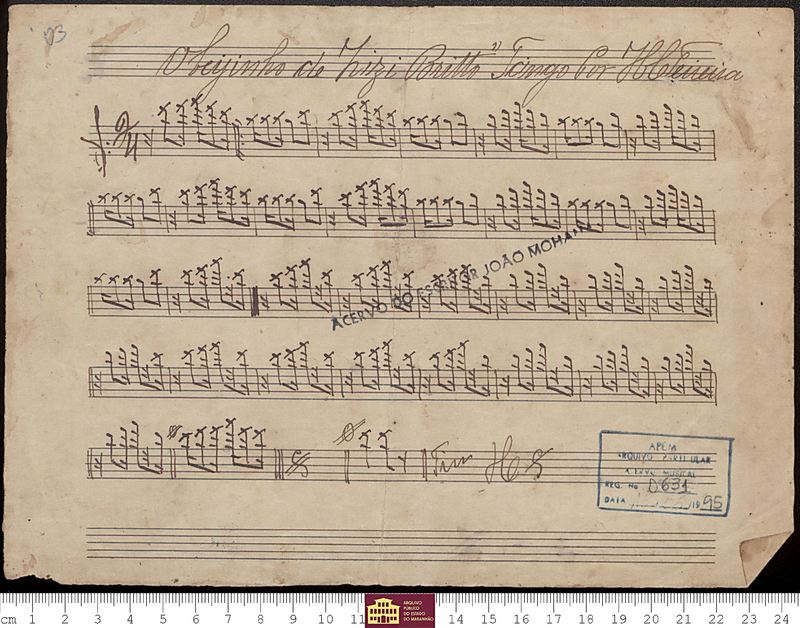 93
O beijinho de Zizi Britto" Tango Por
2/4
ACERVO DO ESCRITOR JOÃO MOHANA
Fim
APEM
ARQUIVO PARTICULAR
ACERVO MUSICAL
REG. No 0631
DATA / /1995
cm 1 2 3 4 5 6 7 8 9 10 11 14 15 16 17 18 19 20 21 22 23 24
ARQUIVO
PÚBLICO
DO ESTADO
DO MARANHÃO